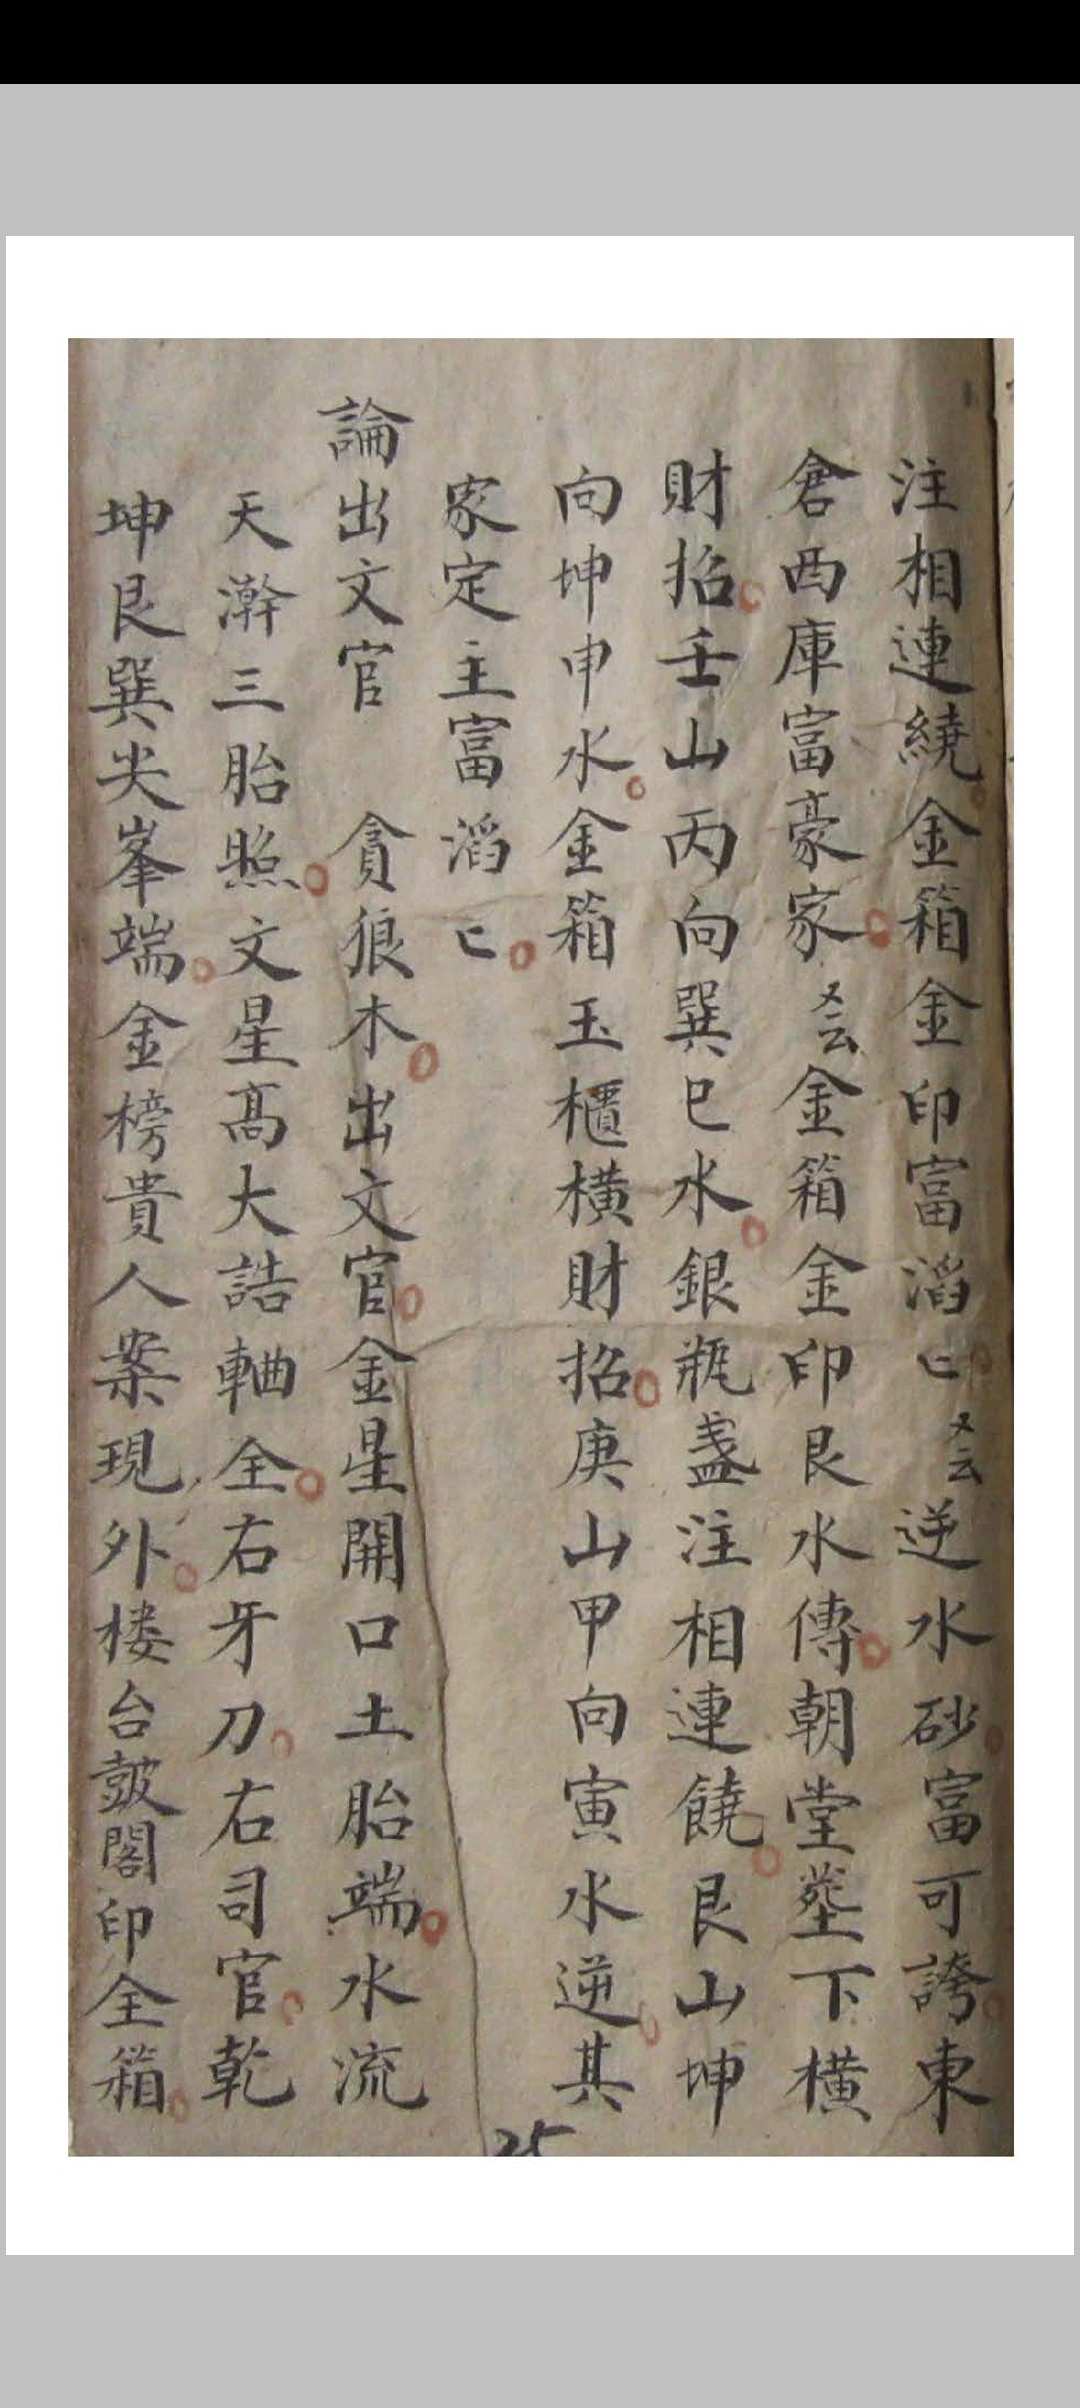 注相連繞金箱金印富滔㠯又云逆水砂富可誇東
倉西庫富豪家又云金箱金印艮水傳朝堂塟下橫
財招壬山丙向巽巳水銀瓶盞注相連饒艮山坤
向坤申水金箱玉櫃橫財招庚山甲向寅水逆其
家定主富滔
論出文官 貪狼木出文官金星開口土胎端水流
天澣三胎照文星高大誥軸全右牙刀右司官乾
坤艮巽尖峯端金榜貴人案現外楼台鼓閣印全箱
25